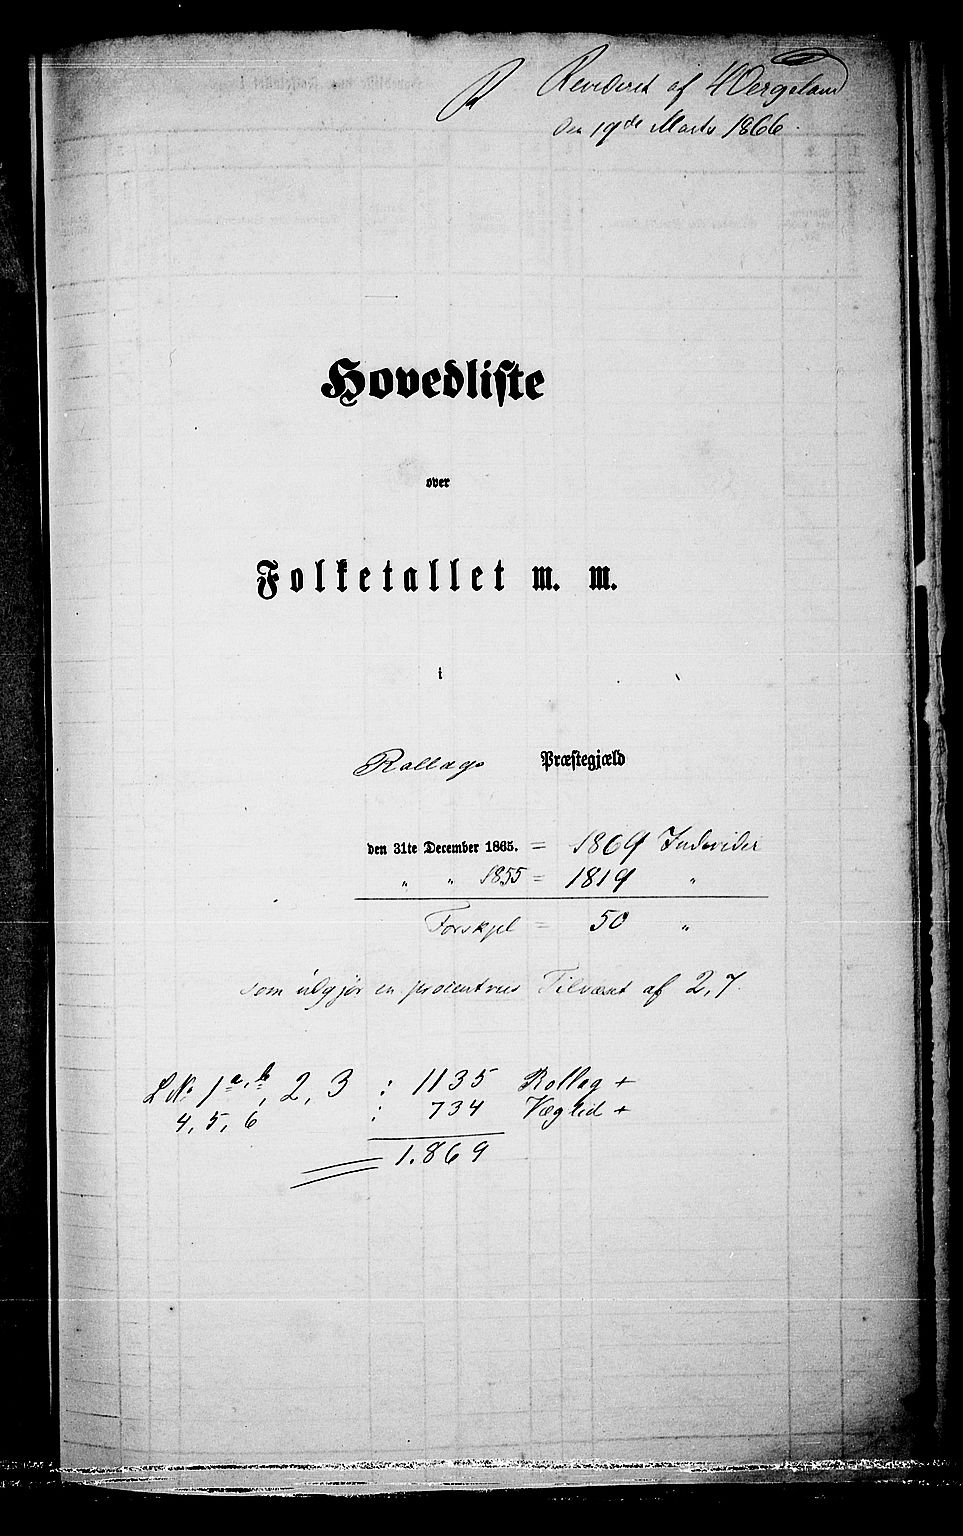 R Revideret af HVergeland
den 19de Marts 1866.
Hovedliste
over
Folketallet m. m.
i
Rollags Præstegjæld
den 31te December 1865. = 1869 Individer
" " 1855 = 1819 "
Forskjel = 50 "
som udgjør en procentvis Tilvæxt af 2,7.
L No 1a, b, 2, 3 : 1135 Rollag +
4, 5, 6 : 734 Væglid +
1.869